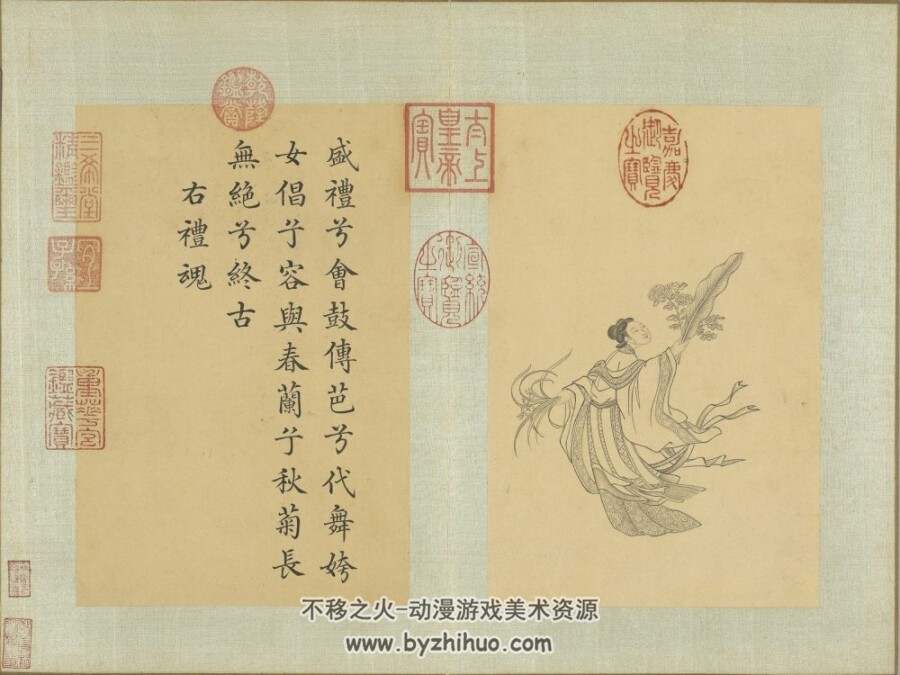 嘉慶御覽之寶
太上皇帝之寶
宣統御覽之寶
盛禮兮會鼓傳芭兮代舞姱
女倡兮容與春蘭兮秋菊長
無絕兮終古
右禮魂
乾隆鑑賞
三希堂精鑑璽
宜子孫
重華宮鑑藏寶
不移之火-动漫游戏美术资源
www.byzhihuo.com